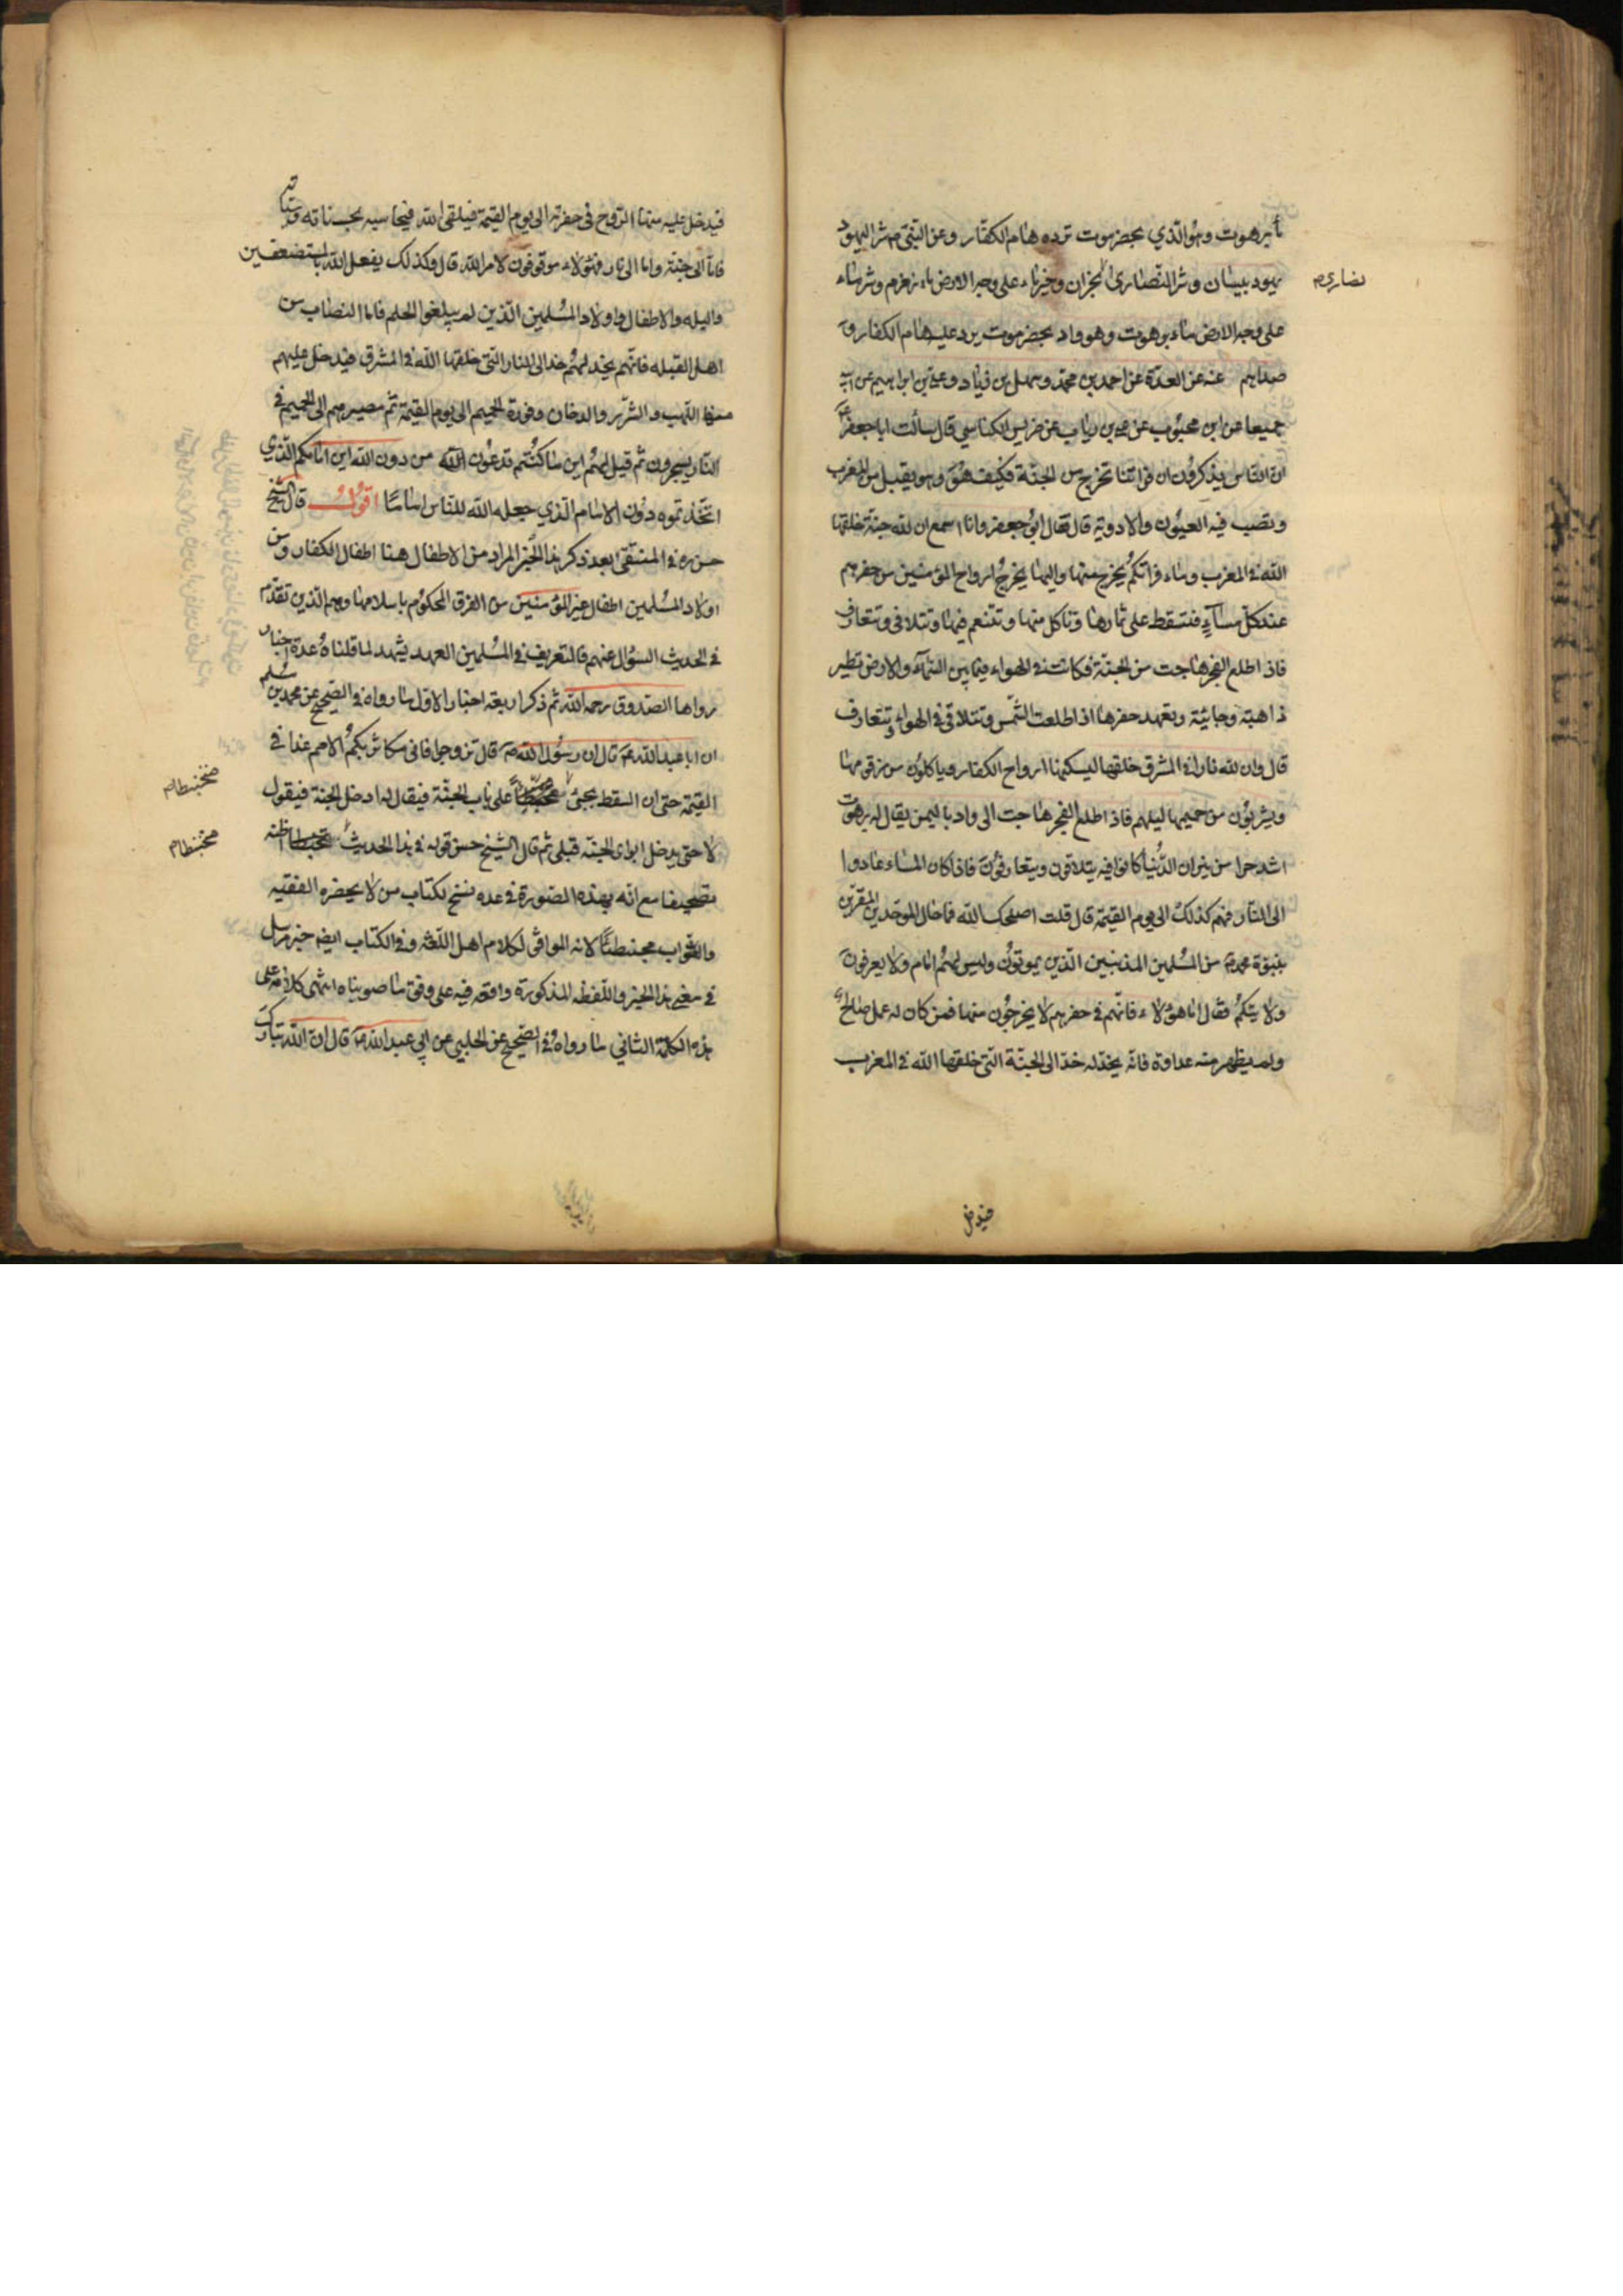 ماء برهوت وهو الذي بحضرموت ترده هام الكفار وعن النبي ص شر اليهود
يهود بيسان وشر النصارى نجران وخير ماء على وجه الارض ماء زمزم وشر ماء
نصارى
على وجه الارض ماء برهوت وهو واد بحضرموت يرد عليه هام الكفار و
صداهم عنه عن العدة عن احمد بن محمد وسهل بن زياد وعلي بن ابراهيم عن ابيه
جميعا عن ابن محبوب عن علي بن رياب عن ضريس الكناسي قال سألت ابا جعفر ع
ان الناس يذكرون ان فراتنا تخرج من الجنة فكيف هو وهو يقبل من المغرب
وتصب فيه العيون والاودية قال فقال ابو جعفر وانا اسمع ان لله جنة خلقها
الله في المغرب وماء فراتكم يخرج منها واليها يخرج ارواح المؤمنين من حفرهم
عند كل مساء فتسقط على ثمارها وتاكل منها وتتنعم فيها وتتلاقى وتتعارف
فاذا طلع الفجر هاجت من الجنة فكانت في الهواء فيما بين السماء والارض تطير
ذاهبة وجايئة وتعهد حفرها اذا طلعت الشمس وتتلاقى في الهواء وتتعارف
قال وان لله نارا في المشرق خلقها ليسكنها ارواح الكفار وياكلون من زقومها
ويشربون من حميمها ليلهم فاذا طلع الفجر هاجت الى واد باليمن يقال له برهوت
اشد حرا من نيران الدنيا كانوا فيه يتلاقون ويتعارفون فاذا كان المساء عادوا
الى النار فهم كذلك الى يوم القيمة قال قلت اصلحك الله فما حال الموحدين المقرين
بنبوة محمد ص من المسلمين المذنبين الذين يموتون وليس لهم امام ولا يعرفون
ولايتكم فقال اما هؤلاء فانهم في حفرهم لا يخرجون منها فمن كان له عمل صالح
ولم يظهر منه عداوة فانه يخد له خدا الى الجنة التي خلقها الله في المغرب
فيدخل
فيدخل عليه منها الروح في حفرته الى يوم القيمة فيلقى الله فيحاسبه بحسناته وسيئاته
فاما الى جنة واما الى نار فهؤلاء موقوفون لامر الله قال وكذلك يفعل الله بالمستضعفين
والبله والاطفال واولاد المسلمين الذين لم يبلغوا الحلم فاما النصاب من
اهل القبله فانهم يخد لهم خدا الى النار التي خلقها الله في المشرق فيدخل عليهم
منها اللهب والشرر والدخان وفورة الحميم الى يوم القيمة ثم مصيرهم الى الحميم في
النار يسجرون ثم قيل لهم اين ما كنتم تدعون من دون الله اين امامكم الذي
اتخذتموه دون الامام الذي جعله الله للناس اماما اقول قال الشيخ
حسن ره في المنتقى بعد ذكر هذا الخبر المراد من الاطفال هنا اطفال الكفار ومن
اولاد المسلمين اطفال غير المؤمنين من الفرق المحكوم باسلامها وهم الذين تقدم
في الحديث السؤال عنهم فالتعريف في المسلمين العهد يشهد لما قلناه عدة اخبار
رواها الصدوق رحمه الله ثم ذكر اربعة اخبار الاول ما رواه في الصحيح عن محمد بن مسلم
ان ابا عبد الله ع قال ان رسول الله ص قال تزوجوا فاني مكاثر بكم الامم غدا في
القيمة حتى ان السقط يجيئ على باب الجنة فيقال له ادخل الجنة فيقول
لا حتى يدخل ابواي الجنة قبلي ثم قال الشيخ حسن قوله في هذا الحديث اظنه
تصحيفا مع انه بهذه الصورة في عدة نسخ لكتاب من لا يحضره الفقيه
والصواب محبنطئا لانه الموافق لكلام اهل اللغة وفي الكتاب ايضا خبر مرسل
في معنى هذا الخبر واللفظه المذكورة واقعه فيه على وفق ما صوبناه انتهى كلامه على
هذه الكلمة الثاني ما رواه في الصحيح عن الحلبي عن ابي عبد الله ع قال ان الله تبارك